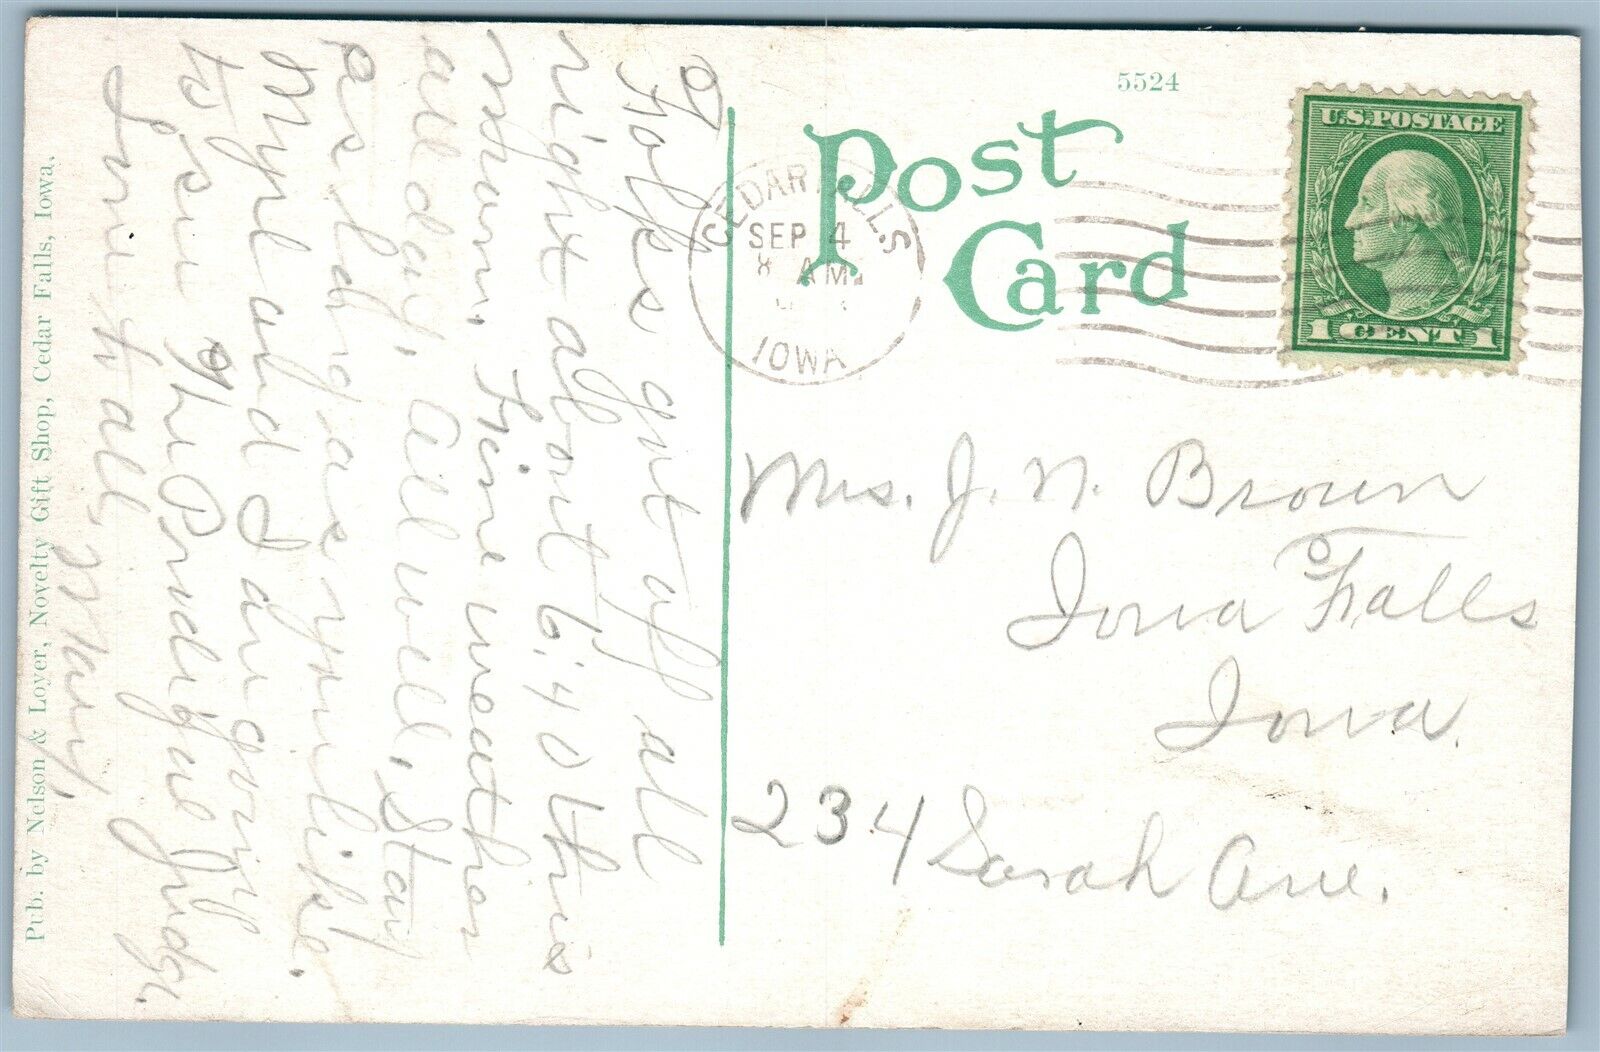 5524
Post
Card
U.S. POSTAGE
1 CENT 1
CEDAR FALLS
SEP 4
8 AM
IOWA
Mrs. J. N. Brown
Iowa Falls
Iowa.
234 Sarah Ave.
Folks got off all
right about 6:40 this
morn. Fine weather
all day. All well. Stay
as long as you like.
Myrl and I are going
to see The Prodigal Judge.
Love to all. Mary
Pub. by Nelson & Loyer, Novelty Gift Shop, Cedar Falls, Iowa.